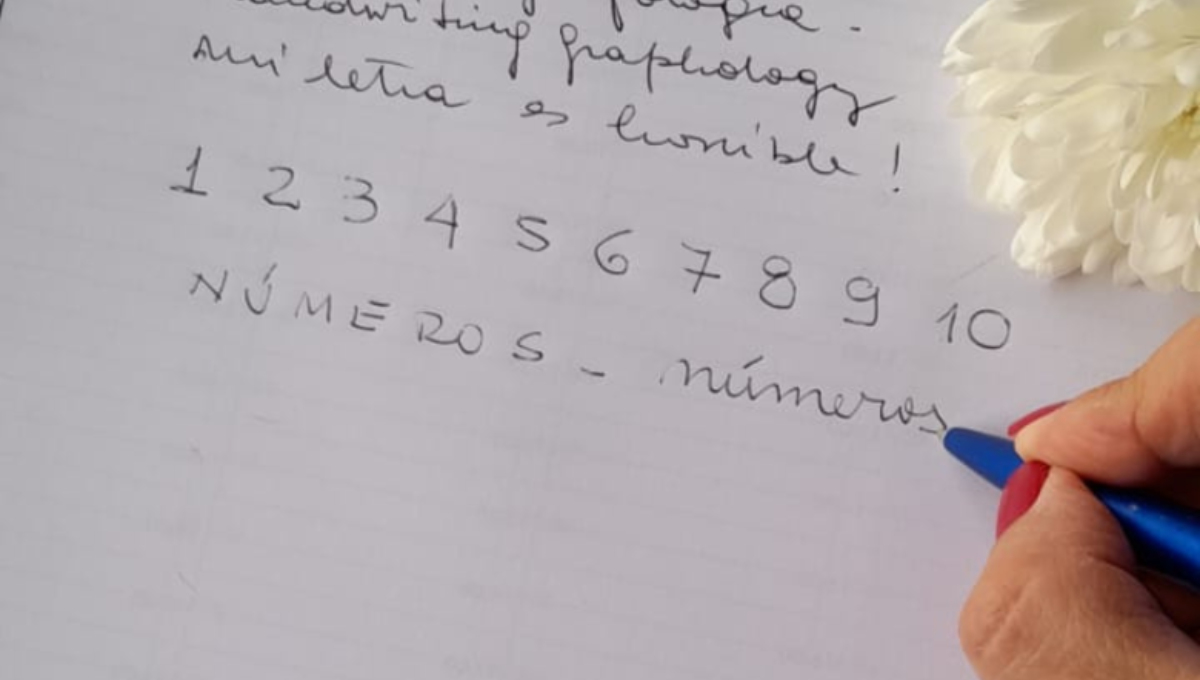 handwriting graphology
mi letra es horrible!
1 2 3 4 5 6 7 8 9 10
NÚMEROS - números